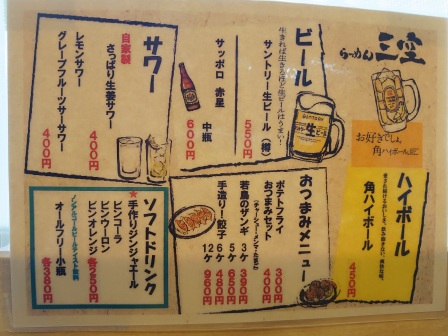 らーめん
三空
お好きでしょ。
角ハイボール
ビール
生きれば生きるほど生ビールはうまい!
サントリー生ビール (樽)
550円
サッポロ 赤星 中瓶
600円
サワー
自家製
さっぱり生姜サワー
400円
レモンサワー
400円
グレープフルーツサワー
400円
ハイボール
角ハイボール
450円
おつまみメニュー
おつまみセット
(チャーシュー・メンマ・たまご)
400円
ポテトフライ
300円
若鳥のザンギ
3ケ 390円
5ケ 650円
手造り餃子
6ケ 480円
12ケ 960円
ソフトドリンク
★手作りジンジャエール
ビンコーラ
ビンウーロン
ビンオレンジ
各250円
ノンアルコールビールテイスト飲料
オールフリー小瓶
各380円